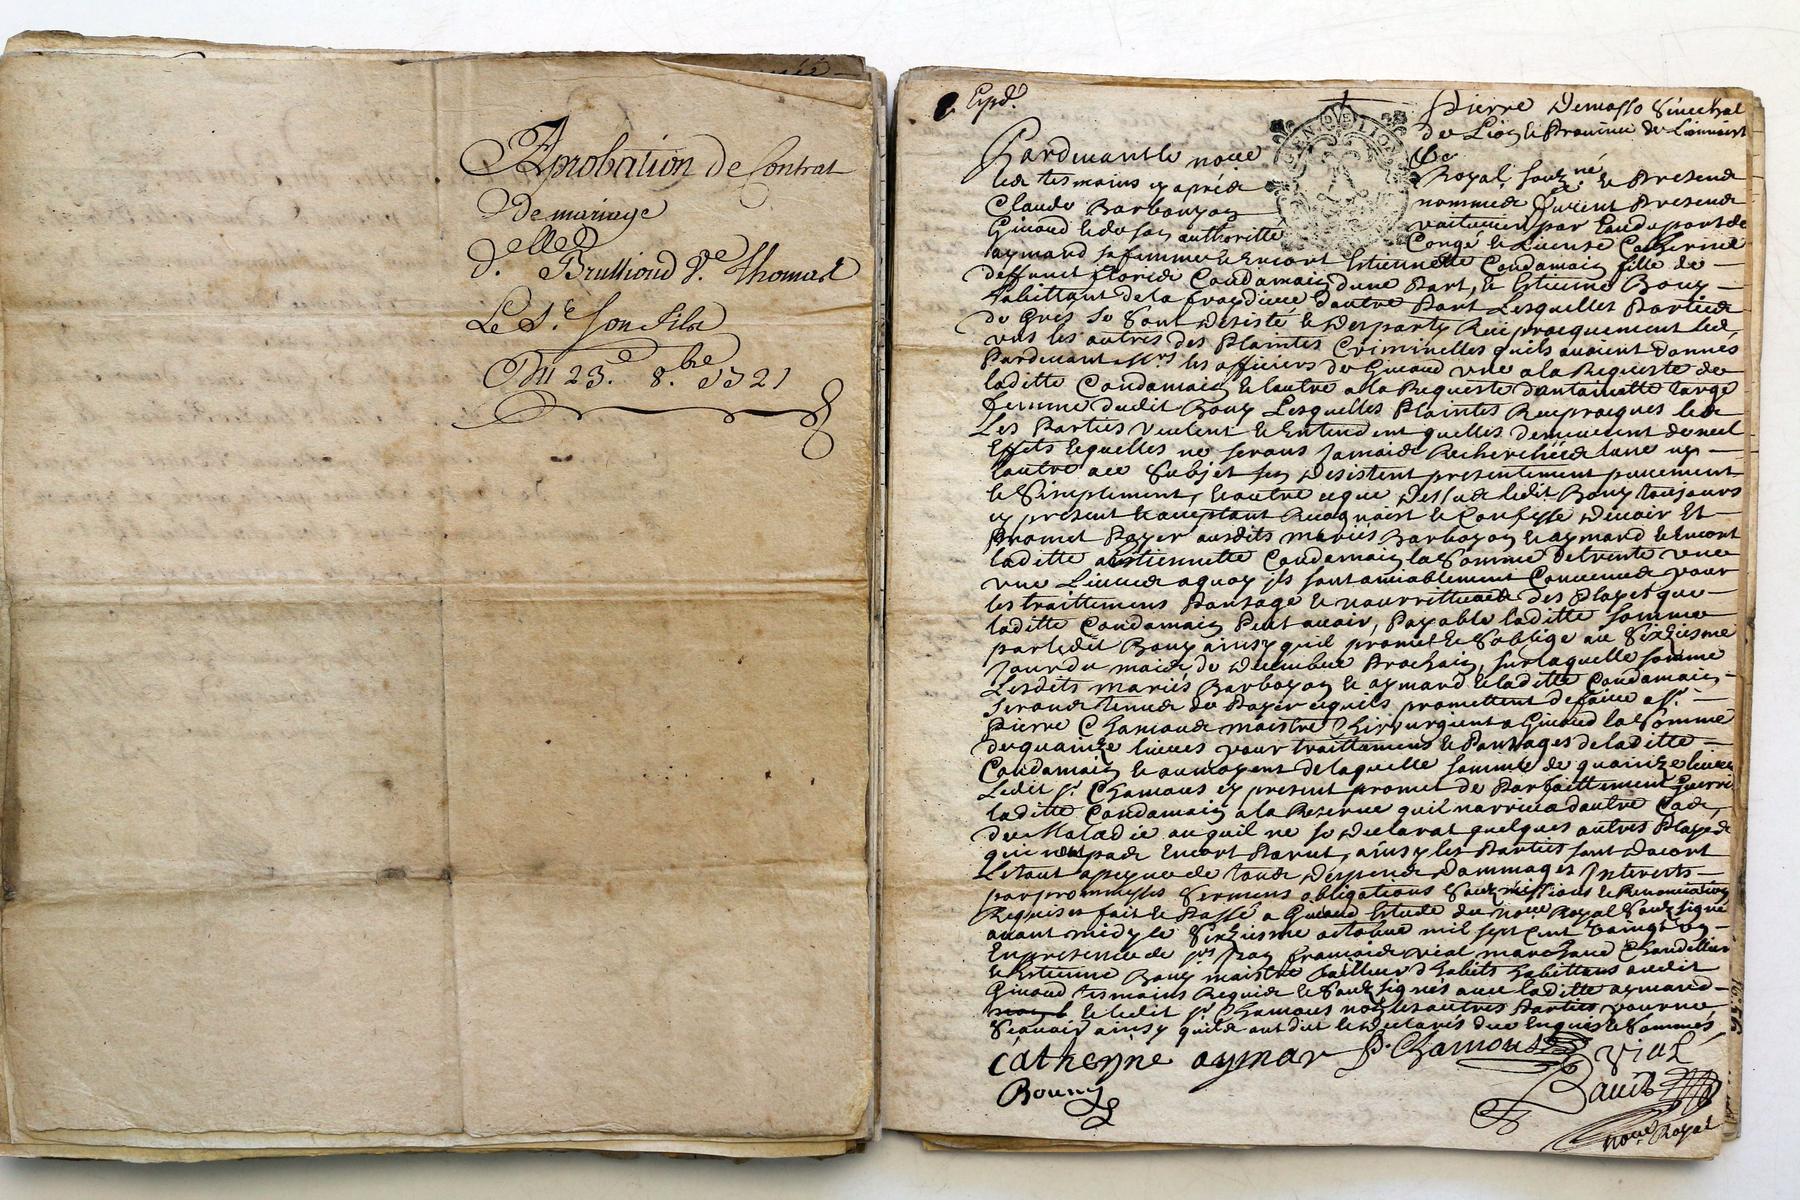 Aprobation de Contrat
De mariage
d.elle Brullioud V.e Thomas
Le S.r son fils
Du 23.e 8.bre 1721
Expd.
Pierre Demasso Sénéchal
de Lion & Province de Lionnois
Pardevant le no.re
Royal souz.né & Present
les tesmoins cy après
nommés furent Presents
Claude Barboyon
voiturier par Eau du port de
Giuord & de son authoritte
Congé & Licence Catherine
aymard sa femme & Encort Estiennette Condamain fille de
deffunct Condamain d'une Part, & Estienne Bouy
habittant de la d'autre Part Lesquelles Parties
de Gres se sont Desisté & Desparty Reciproquement les
uns les autres des Plaintes Criminelles quils avoient donnés
Pardevant Mrs les officiers de Giuord une a la Requeste de
laditte Condamain & lautre a la Requeste dantoinette large
femme dudit Bouy Lesquelles Plaintes Reciproques
Les Parties veulent & Entendent quelles demeurent de nul
Effets & quelles ne seront Jamais Recherchées lune ny
lautre a ce Subjet sen desistent presentement purement
& Simplement, & outre ce que Dessus ledit Bouy toujours
cy present & acceptant Recognoist & Confesse Devoir Et
Promet Payer ausdits mariés Barboyon & aymard & Encort
laditte Estiennette Condamain la Somme de trente une
une Livres a quoy ils sont amiablement Convenus pour
les traittemens Pansage & nourrittures des Playes que
laditte Condamain Peut avoir, Payable laditte somme
par ledit Bouy ainsy quil promet & Soblige au Sixiesme
Jour du mois de Decembre Prochain, sur laquelle somme
Lesdits mariés Barboyon & aymard & laditte Condamain
seront tenus de Payer & quils promettent de faire a Sr.
Pierre Chamous maistre Chirurgient a Giuord la Somme
de quainze livres pour traittemens & Pansages de laditte
Condamain & au moyent de laquelle somme de quainze livres
Ledit Sr. Chamous cy present promet de Parfaittement Guerir
laditte Condamain a la Reserve quil narrive dautre Cas
de Maladie ou quil ne se Declarat quelques autres Playes
qui nont pas Encort Parut, ainsy les Parties sont Dacort
Le tout a peyne de tous Despens Dommages Interests
par promesses Sermens obligations Soubmissions & Renonciations
Requises fait & Passé a Giuord Estude du no.re Royal Souzsigné
avant midy le Sixiesme octobre mil sept cent vaingt un
En presence de françois vial marchand Chandellier
& Estienne Bouy maistre Tailleur d'habits habittans audit
Giuord tesmoins Requis & Souzsignés avec laditte aymard
& ledit Sr. Chamous non les autres Parties pour ne
Scavoir ainsy quils ont dit & declarés de ce Enquis & Sommés
catheryne aymar P. Chamous vial
Bouuy
no.re Royal